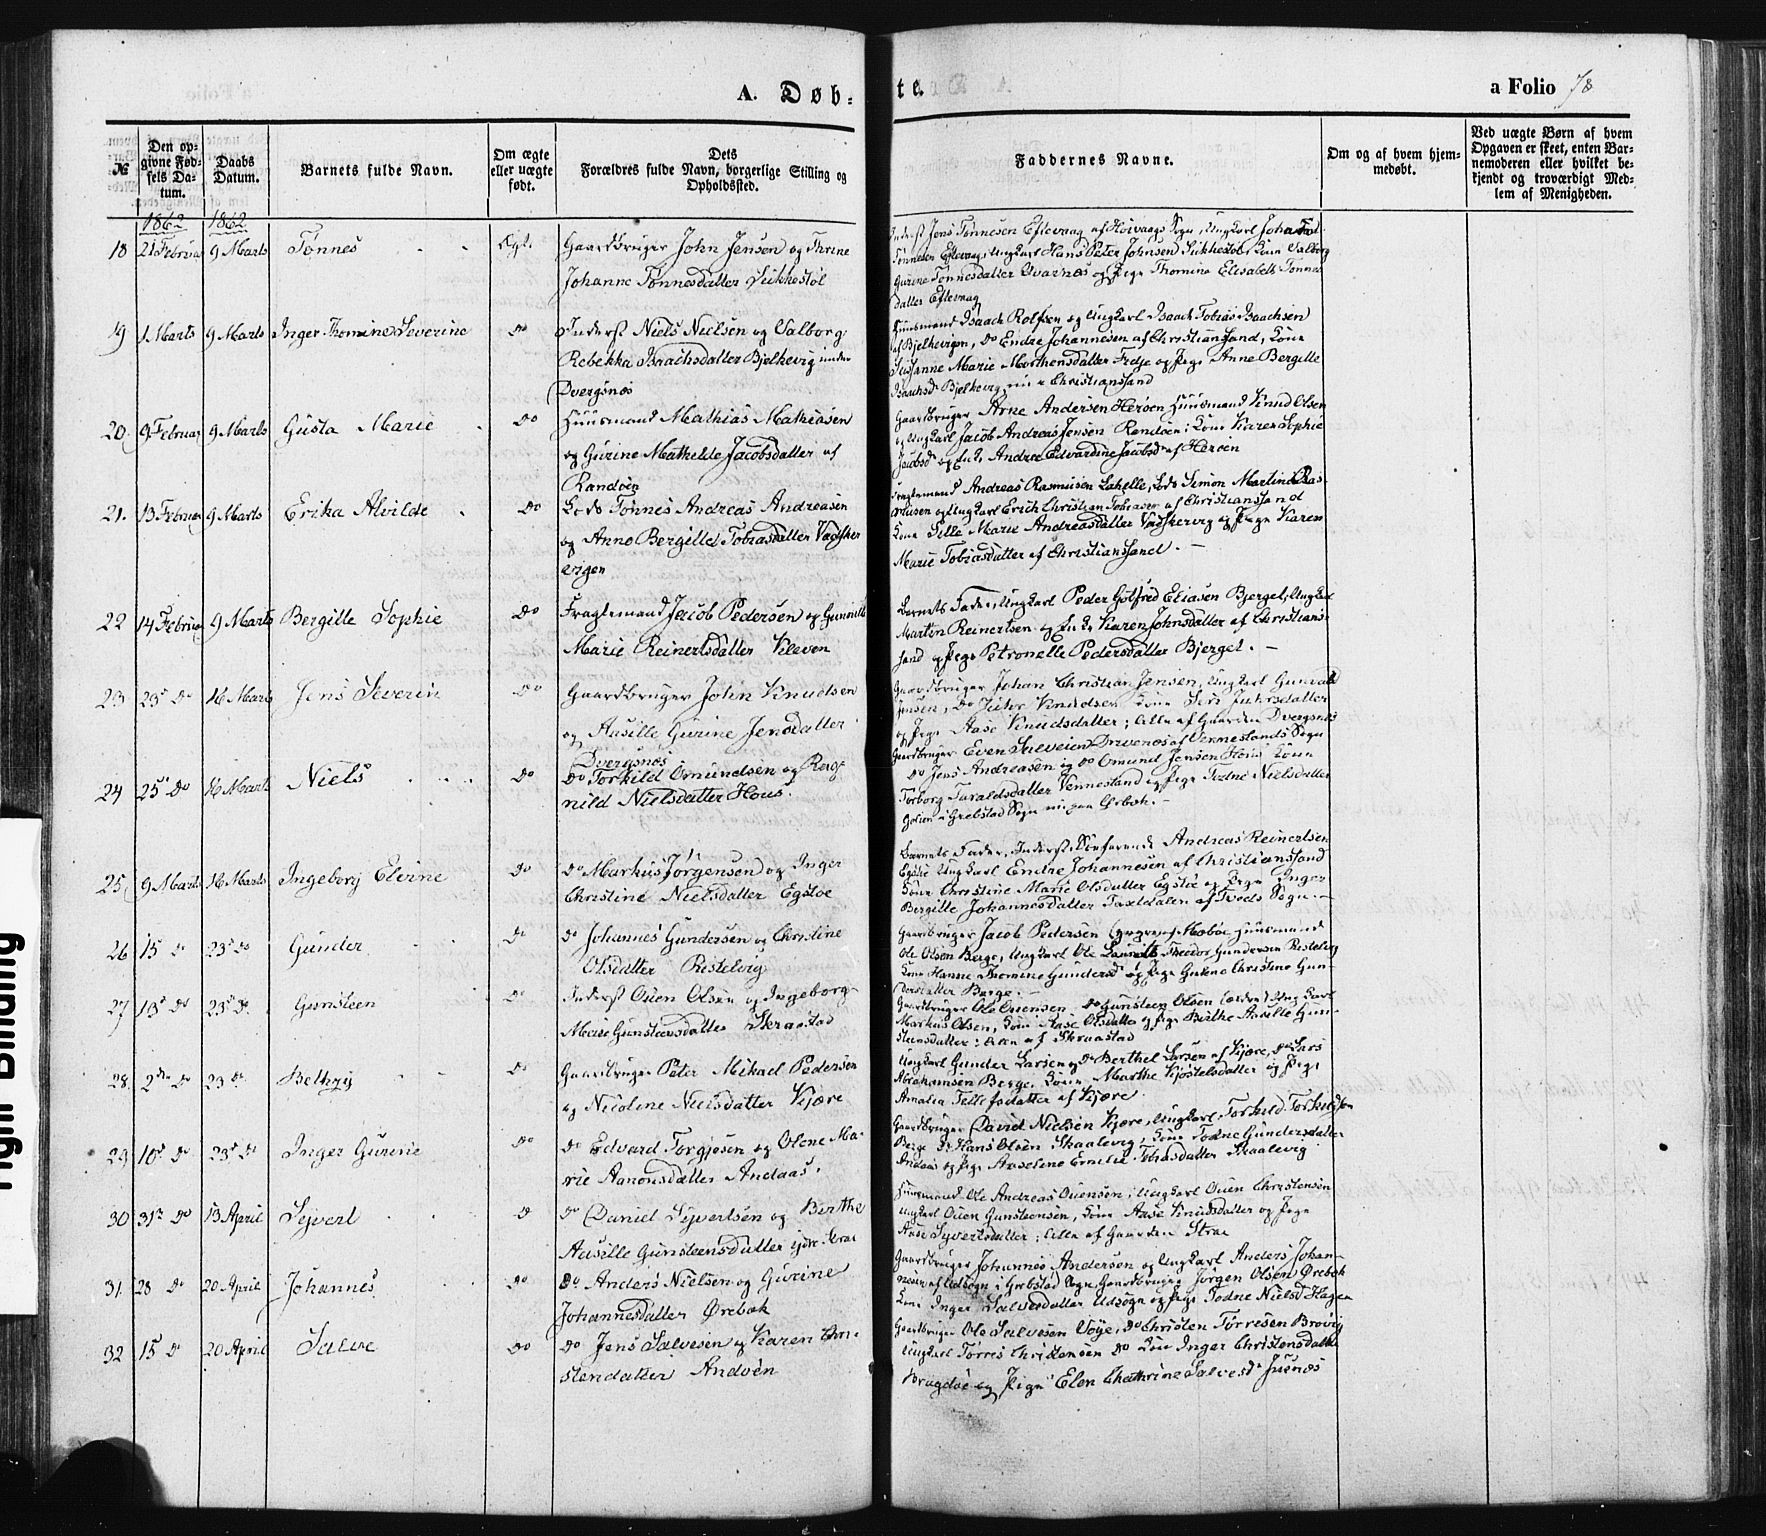 A. Døb-
te.
a Folio 78
№
Den op-
givne Fød-
sels Da-
tum.
Daabs
Datum.
Barnets fulde Navn.
Om ægte
eller uægte
født.
Dets
Forældres fulde Navn, borgerlige Stilling og
Opholdssted.
Faddernes Navne.
Om og af hvem hjem-
medøbt.
Ved uægte Børn af hvem
Opgaven er skeet, enten Bar-
nemoderen eller hvilket be-
kjendt og troværdigt Med-
lem af Menigheden.
1862 1862
18 21 Februar 9 Marts Tønnes Ægt. Gaardbruger John Jensen og Thrine
Johanne Tønnesdatter Sukkestøl
Inderst Jens Tønnesen Eftevaag af Høivaags Sogn, Ungkarl Johan
Tønnesen Eftevaag, Ungkarl Hans Peter Johnsen Sukkestøl, Kone Valborg
Gurine Tønnesdatter Qvarnes og Pige Thomine Elisabeth Tønnes-
datter Eftevaag
19 1 Marts 9 Marts Inger Thomine Severine Do Inderst Niels Nielsen og Valborg
Rebekka Isaachsdatter Bjelkevig under
Dvergsnes
Huusmand Isaach Rolfsen og Ungkarl Isaach Tobias Isaachsen
af Bjelkevigen, Do Endre Johannesen af Christianssand, Kone
Susanne Marie Morthensdatter Fidje og Pige Anne Bergille
Isaachsd. Bjelkevig nu i Christianssand
20. 9 Februar 9 Marts Gusta Marie Do Huusmand Mathias Mathiasen
og Gurine Mathilde Jacobsdatter af
Randøen
Gaardbruger Arne Andersen Herøen Huusmand Knud Olsen
og Ungkarl Jacob Andreas Jensen Randøen; Kone Karen Sophie
Jacobsd og Enke Andrea Edvardine Jacobsd af Herøen
21. 13 Februar 9 Marts Erika Alvilde Do Lods Tønnes Andreas Andreasen
og Anne Bergille Tobiasdatter Vadsker
vigen
Fragtemand Andreas Rasmusen Lahelle, Lods Simon Martin Ras-
musen og Ungkarl Erich Christian Tobiasen af Christianssand
Kone Sille Marie Andreasdatter Vadskervig og Pige Karen
Marie Tobiasdatter af Christianssand. —
22 14 Februar 9 Marts Bergille Sophie Do Fragtemand Jacob Pedersen og Gunnild
Marie Reinertsdatter Kleven
Barnets Fader, Ungkarl Peder Gotfred Eliasen Bjerget, Ungkarl
Martin Reinertsen og Enke Karen Johnsdatter af Christians-
sand og Pige Petronelle Pedersdatter Bjerget. —
23 23d Do 16 Marts Jens Severin Do Gaardbruger John Knudsen
og Aasille Gurine Jensdatter
Dvergsnes
Gaardbruger Johan Christian Jensen, Ungkarl Gunvald
Jensen, Do Peter Knudsen Kone Siri
og Pige Aase Knudsdatter; Alle af Gaarden Dvergsnes
24 25 Do 16 Marts Niels Do Do Torkild Omundsen og Rag-
nild Nielsdatter Hous.
Gaardbruger Even Salvesen Drivenes af Vennesland Sogn
Do Jens Andreasen og Do Omund Jensen Hous Kone
Torborg Taraldsdatter Vennesland og Pige Todne Nielsdatter
i Grebstad Sogn nu paa Ørbek. —
25 9 Marts 16 Marts Ingeborg Elvine Do Do Markus Jørgensen og Inger
Christine Nielsdatter Egstøe
Barnets Fader, Inderst, Andreas Reinertsen
Egstøe Ungkarl Endre Johannesen af Christianssand
Kone Christine Marie Olsdatter Egstøe og Pige Inger
Bergille Johannesdatter af Tveds Sogn. —
26 15 Do 23d Do Gunder Do Do Johannes Gundersen og Christine
Olsdatter Ristelvig
Gaardbruger Jacob Pedersen af Moboe, Huusmand
Ole Olsen Berge, Ungkarl Ole Laurits Theodor Gundersen Ristelvig
Kone Hanne Thomine Gundersd og Pige Gurine Christine Gun-
dersdatter Berge. —
27 13d Do 23d Do Gunsteen Do Inderst Ouen Olsen og Ingeborg
Marie Gunsteensdatter Skraastad
Gaardbruger Ole Ouensen, Do Gunsteen Olsen (ældre) Ungkarl
Markus Olsen, Kone Aase Olsdatter og Pige Birthe Aasille Gun-
steensdatter: Alle af Skraastad
28. 2den Do 23 Do Bethzy Do Gaardbruger Peter Mikael Pedersen
og Nicoline Nielsdatter Kjære
Ungkarl Gunder Larsen og Do Berthel Larsen af Kjære, Do Lars
Abrahamsen Berge, Konen Marthe Kjøstelsdatter og Pige
Amalia Tellefsdatter af Kjære.
29 10d Do 23d Do Inger Gurine Do Do Edvard Torgjøsen og Olene Ma-
rie Aanonsdatter Andaas.
Gaardbruger David Nielsen Kjære, Ungkarl Torkild Torkildsen
Berge Do Hans Olsen Skaalevig, Kone Todne Gundersdatter
Andaas og Pige Aaseline Emilie Tobiasdatter Skaalevig
30 31te Do 13 April Sejvert Do Do Daniel Sejvertsen og Birthe
Aasille Gunsteensdatter
Huusmand Ole Andreas Ouensen; Ungkarl Ouen Christensen
Ungkarl Ouen Gunsteensen, Kone Aase Knudsdatter og Pige
Aase Syvertsdatter; Alle af Gaarden Strai
31. 28 Do 20 April Johannes Do Do Anders Nielsen og Gurine
Johannesdatter Ørebek
Gaardbruger Johannes Andersen og Ungkarl Anders Johan-
nesen af Udsøgn i Grebstad Sogn, Gaardbruger Jørgen Olsen Ørebek
Kone Inger Salvesdatter Udsøgn og Pige Todne Nielsd Hagen
32 15 Do 20 April Salve Do Do Jens Salvesen og Karen Chri-
stensdatter Andøen
Gaardbruger Ole Salvesen Vøye, Do Christen Torresen Brovig
Ungkarl Torres Christensen Do Kone Inger Christensdatter
Bragdøe og Pige Elen Chathrine Salvesdr